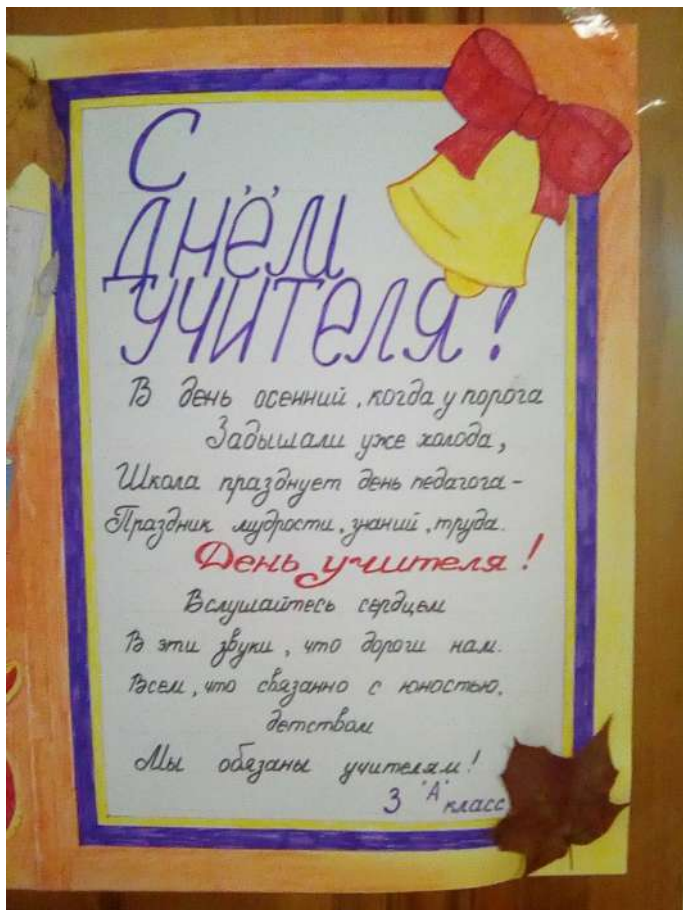 С
ДНЁМ
УЧИТЕЛЯ!
В день осенний, когда у порога
Задышали уже холода,
Школа празднует день педагога -
Праздник мудрости, знаний, труда.
День учителя!
Вслушайтесь сердцем
В эти звуки, что дороги нам.
Всем, что связанно с юностью,
детством
Мы обязаны учителям!
3 "А" класс